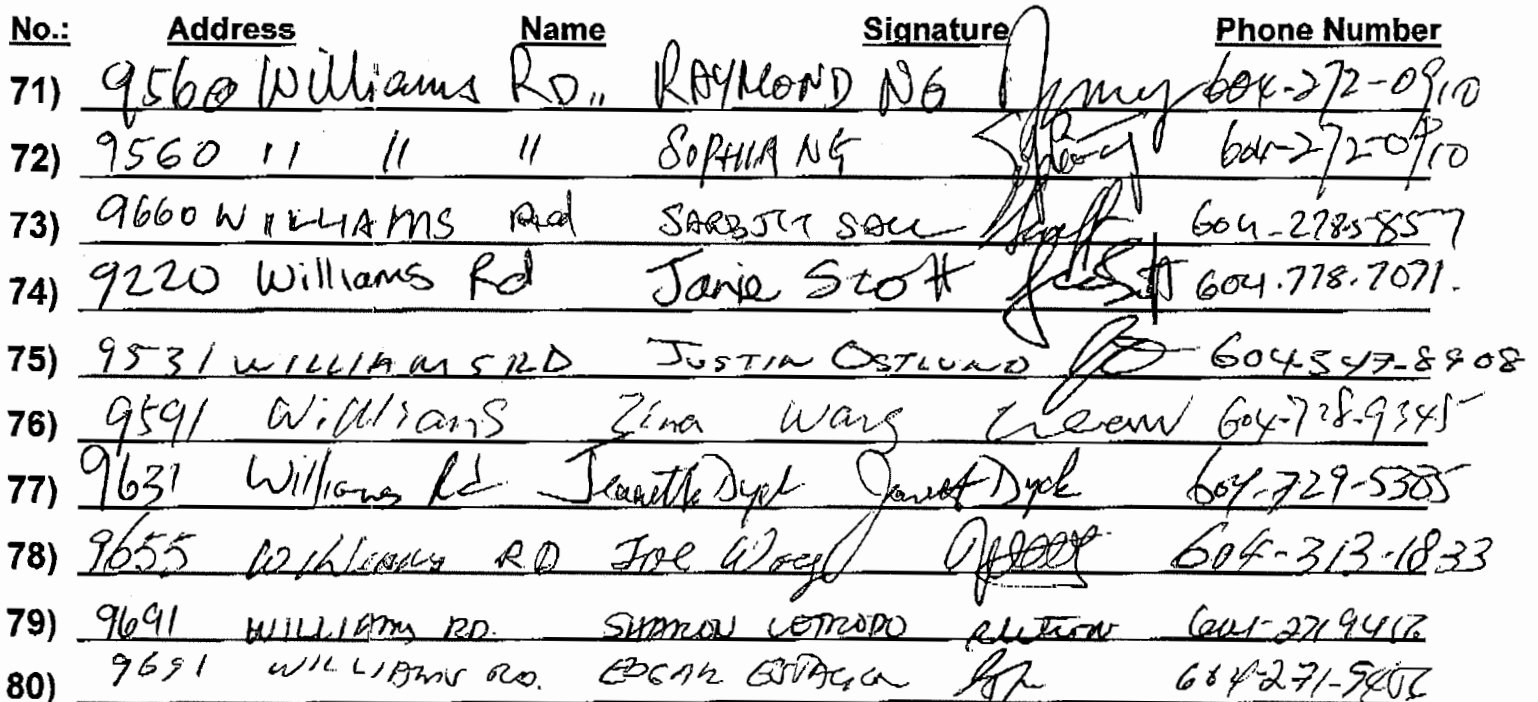 No.: Address Name Signature Phone Number
71) 9560 Williams RD., RAYMOND NG 604-272-0910
72) 9560 " " " SOPHIA NG 604-272-0910
73) 9660 WILLIAMS Rd SARBJIT 604-278-5857
74) 9220 Williams Rd Janie Scott 604.778.7071.
75) 9531 WILLIAMS RD JUSTIN OSTLUND 604-547-8908
76) 9591 Williams Zina Wang 604-728-9345
77) 9631 Williams Rd Jeanette Dyck Dyck 604-729-5385
78) 9655 Williams RD Joe 604-313-1833
79) 9691 WILLIAMS RD. SHARON
80) 9691 WILLIAMS RD. EDGAR